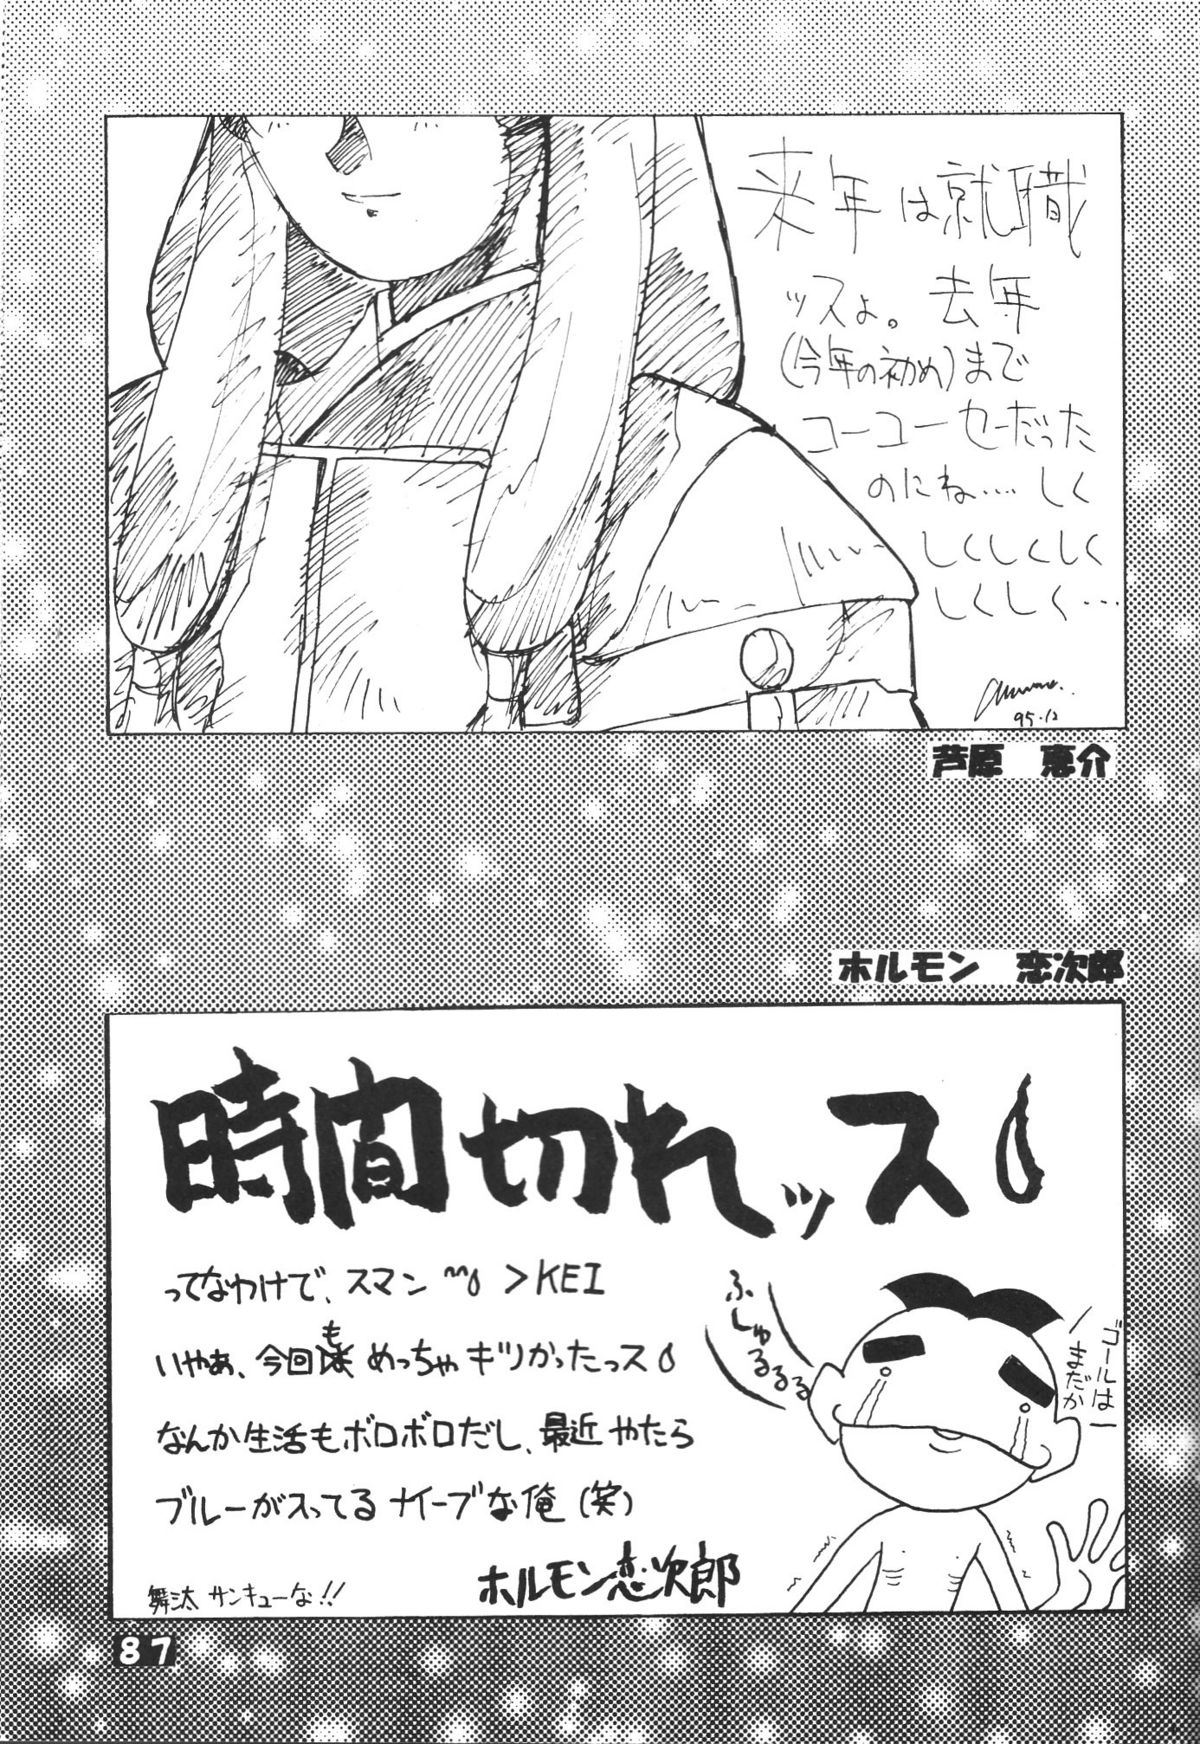 来年は就職
ッスよ。去年
(今年の初め)まで
コーコーセーだった
のにね……しく
しくしくしく
しくしく…
95.12
芦原　恵介
ホルモン　恋次郎
時間切れッス
ってなわけで、スマン >KEI
いやぁ、今回も めっちゃ キツかったっス
なんか生活もボロボロだし、最近 やたら
ブルーが入ってる ナイーブな俺 (笑)
ホルモン恋次郎
舞汰 サンキューな!!
ふしゅるるるる
ゴールは
まだか
87